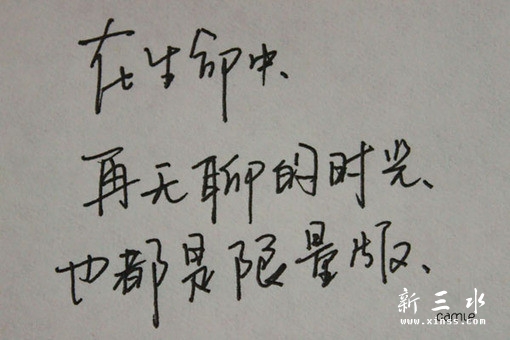 在生命中、
再无聊的时光、
也都是限量版、
camie
新三水
www.xinss.com